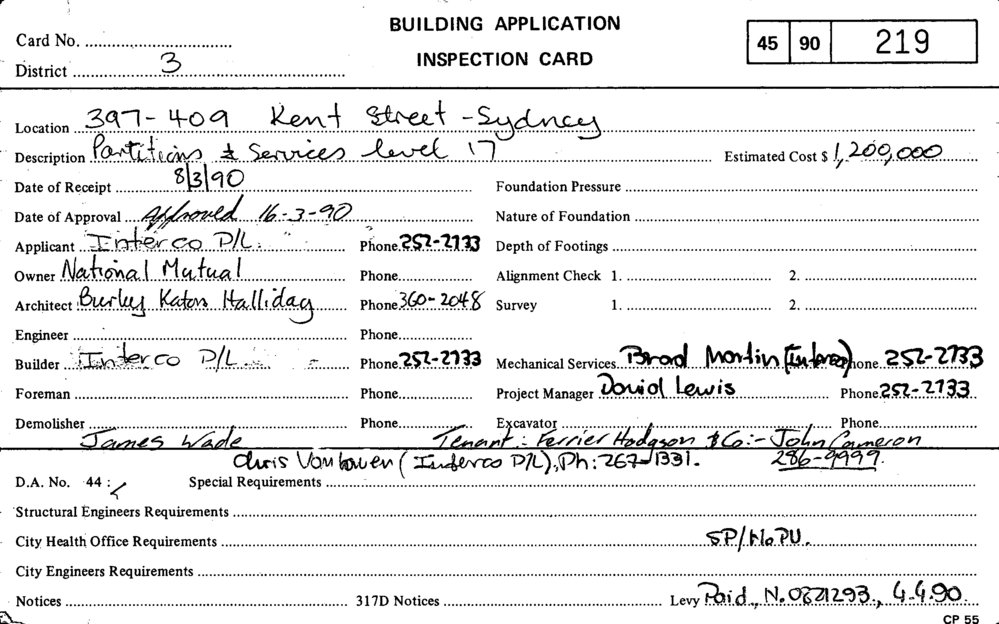 BUILDING APPLICATION
INSPECTION CARD
Card No.
District 3
45 90 219
Location 397-409 Kent Street - Sydney
Description Partitions & Services level 17 Estimated Cost $ 1,200,000
Date of Receipt 8/3/90 Foundation Pressure
Date of Approval Approved 16-3-90 Nature of Foundation
Applicant Interco P/L. Phone 252-2733 Depth of Footings
Owner National Mutual Phone Alignment Check 1. 2.
Architect Burley Katon Halliday Phone 360-2048 Survey 1. 2.
Engineer Phone
Builder Interco P/L Phone 252-2733 Mechanical Services Brad Martin (Interco) Phone 252-2733
Foreman Phone Project Manager David Lewis Phone 252-2733
Demolisher Phone Excavator Phone
James Wade Tenant: Ferrier Hodgson & Co:- John Cameron
Chris (Interco P/L), Ph: 267-1331. 286-9999.
D.A. No. 44: Special Requirements
Structural Engineers Requirements
City Health Office Requirements SP/No PU.
City Engineers Requirements
Notices 317D Notices Levy Paid, N. 4.4.90.
CP 55